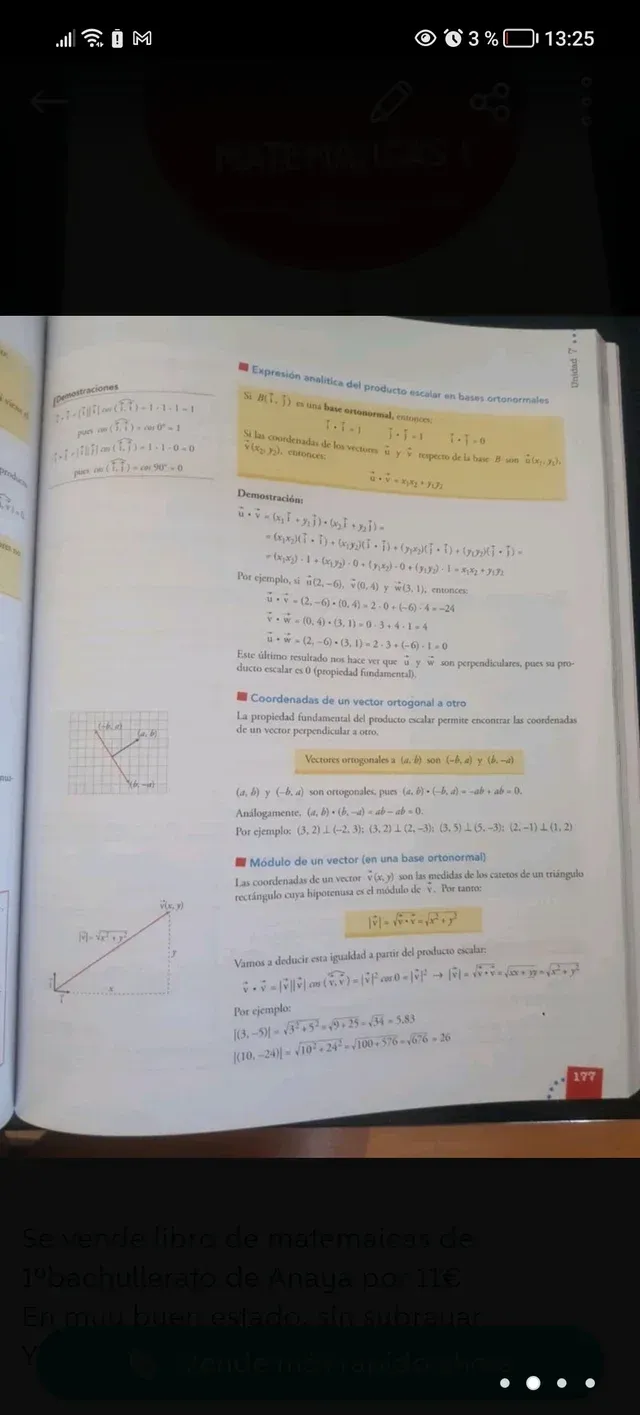 3 % 13:25
MATEMÁTICAS I
Unidad 7
Demostraciones
i⃗ • i⃗ = |i⃗||i⃗| cos (i⃗, i⃗) = 1 · 1 · 1 = 1
pues cos (i⃗, i⃗) = cos 0° = 1
i⃗ • j⃗ = |i⃗||j⃗| cos (i⃗, j⃗) = 1 · 1 · 0 = 0
pues cos (i⃗, j⃗) = cos 90° = 0
Expresión analítica del producto escalar en bases ortonormales
Si B(i⃗, j⃗) es una base ortonormal, entonces:
i⃗ • i⃗ = 1 j⃗ • j⃗ = 1 i⃗ • j⃗ = 0
Si las coordenadas de los vectores u⃗ y v⃗ respecto de la base B son u⃗(x₁, y₁),
v⃗(x₂, y₂), entonces:
u⃗ • v⃗ = x₁x₂ + y₁y₂
Demostración:
u⃗ • v⃗ = (x₁ i⃗ + y₁ j⃗) • (x₂ i⃗ + y₂ j⃗) =
= (x₁x₂)(i⃗ • i⃗) + (x₁y₂)(i⃗ • j⃗) + (y₁x₂)(j⃗ • i⃗) + (y₁y₂)(j⃗ • j⃗) =
= (x₁x₂) · 1 + (x₁y₂) · 0 + (y₁x₂) · 0 + (y₁y₂) · 1 = x₁x₂ + y₁y₂
Por ejemplo, si u⃗(2, –6), v⃗(0, 4) y w⃗(3, 1), entonces:
u⃗ • v⃗ = (2, –6) • (0, 4) = 2 · 0 + (–6) · 4 = –24
v⃗ • w⃗ = (0, 4) • (3, 1) = 0 · 3 + 4 · 1 = 4
u⃗ • w⃗ = (2, –6) • (3, 1) = 2 · 3 + (–6) · 1 = 0
Este último resultado nos hace ver que u⃗ y w⃗ son perpendiculares, pues su pro-
ducto escalar es 0 (propiedad fundamental).
Coordenadas de un vector ortogonal a otro
La propiedad fundamental del producto escalar permite encontrar las coordenadas
de un vector perpendicular a otro.
(–b, a)
(a, b)
(b, –a)
Vectores ortogonales a (a, b) son (–b, a) y (b, –a)
(a, b) y (–b, a) son ortogonales, pues (a, b) • (–b, a) = –ab + ab = 0.
Análogamente, (a, b) • (b, –a) = ab – ab = 0.
Por ejemplo: (3, 2) ⊥ (–2, 3); (3, 2) ⊥ (2, –3); (3, 5) ⊥ (5, –3); (2, –1) ⊥ (1, 2)
Módulo de un vector (en una base ortonormal)
Las coordenadas de un vector v⃗(x, y) son las medidas de los catetos de un triángulo
rectángulo cuya hipotenusa es el módulo de v⃗. Por tanto:
|v⃗| = √(v⃗ • v⃗) = √(x² + y²)
v⃗(x, y)
|v⃗| = √(x² + y²)
y
x
j⃗
i⃗
Vamos a deducir esta igualdad a partir del producto escalar:
v⃗ • v⃗ = |v⃗||v⃗| cos (v⃗, v⃗) = |v⃗|² cos 0 = |v⃗|² → |v⃗| = √(v⃗ • v⃗) = √(xx + yy) = √(x² + y²)
Por ejemplo:
|(3, –5)| = √(3² + 5²) = √(9 + 25) = √34 = 5,83
|(10, –24)| = √(10² + 24²) = √(100 + 576) = √676 = 26
177
Se vende libro de matemaicas de
1ºbachullerato de Anaya por 11€
En muy buen estado, sin subrayar
Y